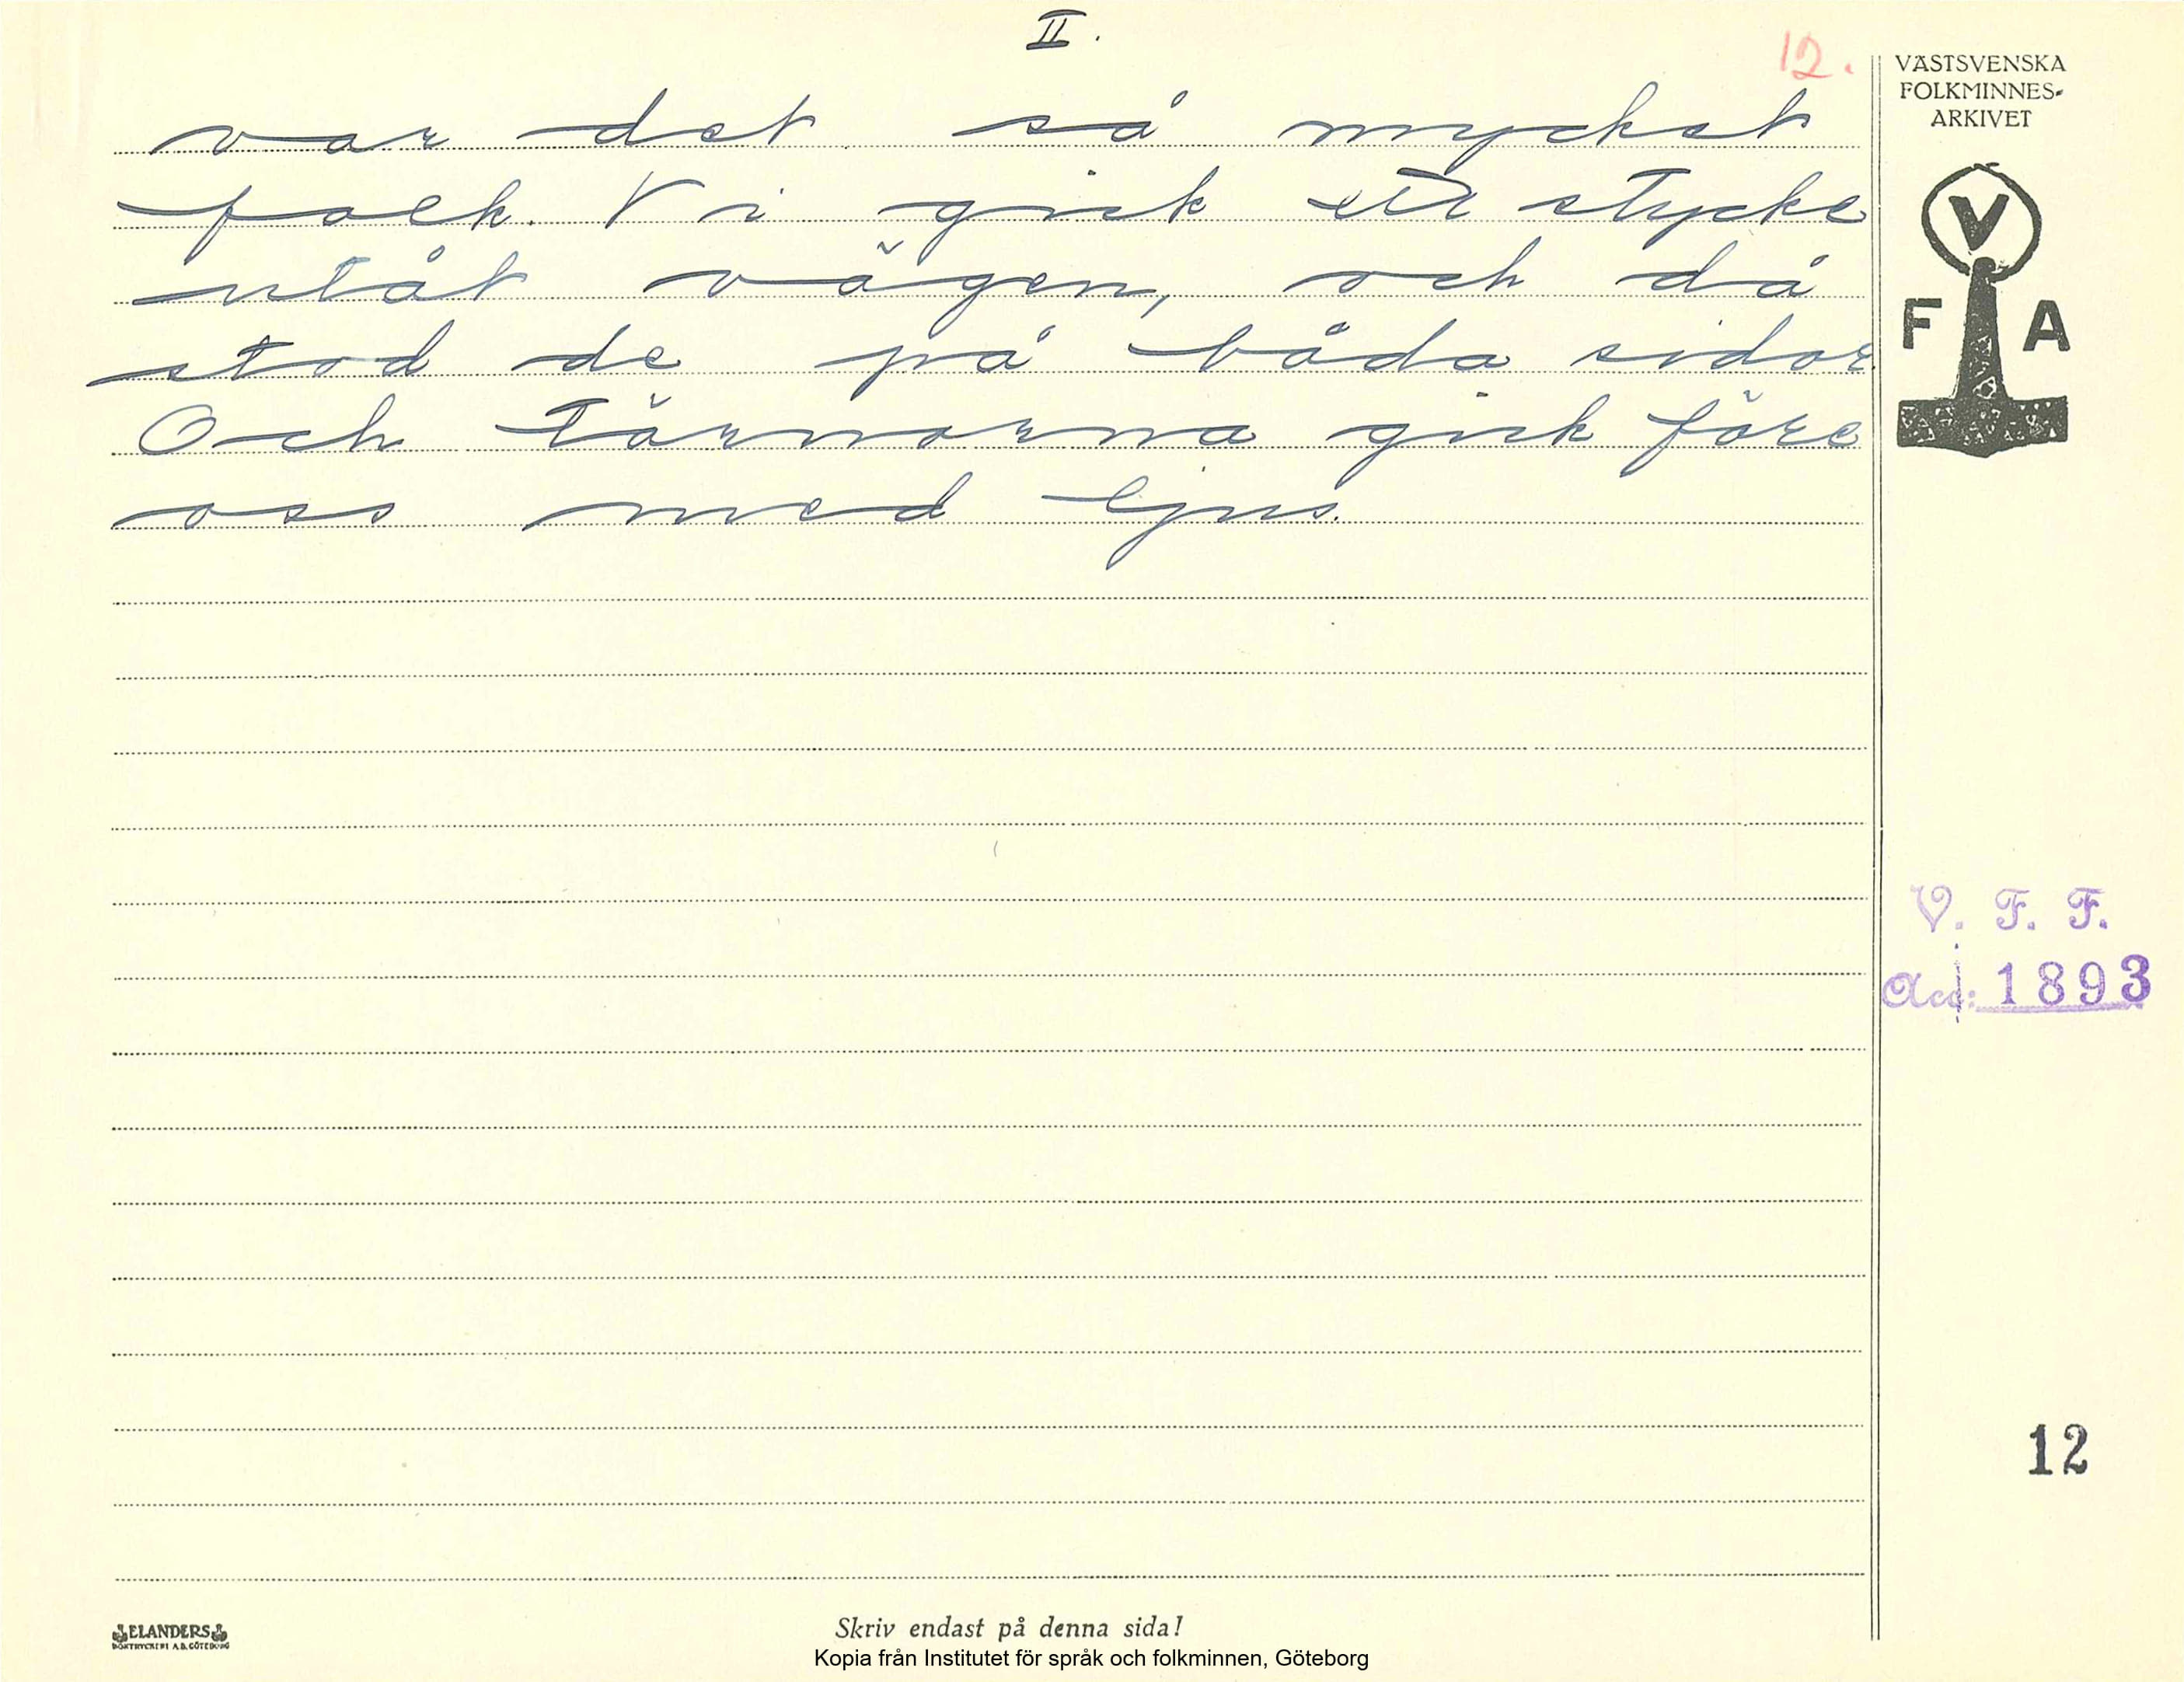 II.
12.
var det så mycket
folk. Vi gick ett stycke
utåt vägen, och då
stod de på båda sidor.
Och tärnorna gick före
oss med ljus.
VÄSTSVENSKA
FOLKMINNES-
ARKIVET
V
F A
V. F. F.
Acc: 1893
12
ELANDERS
BOKTRYCKERI A.B. GÖTEBORG
Skriv endast på denna sida!
Kopia från Institutet för språk och folkminnen, Göteborg